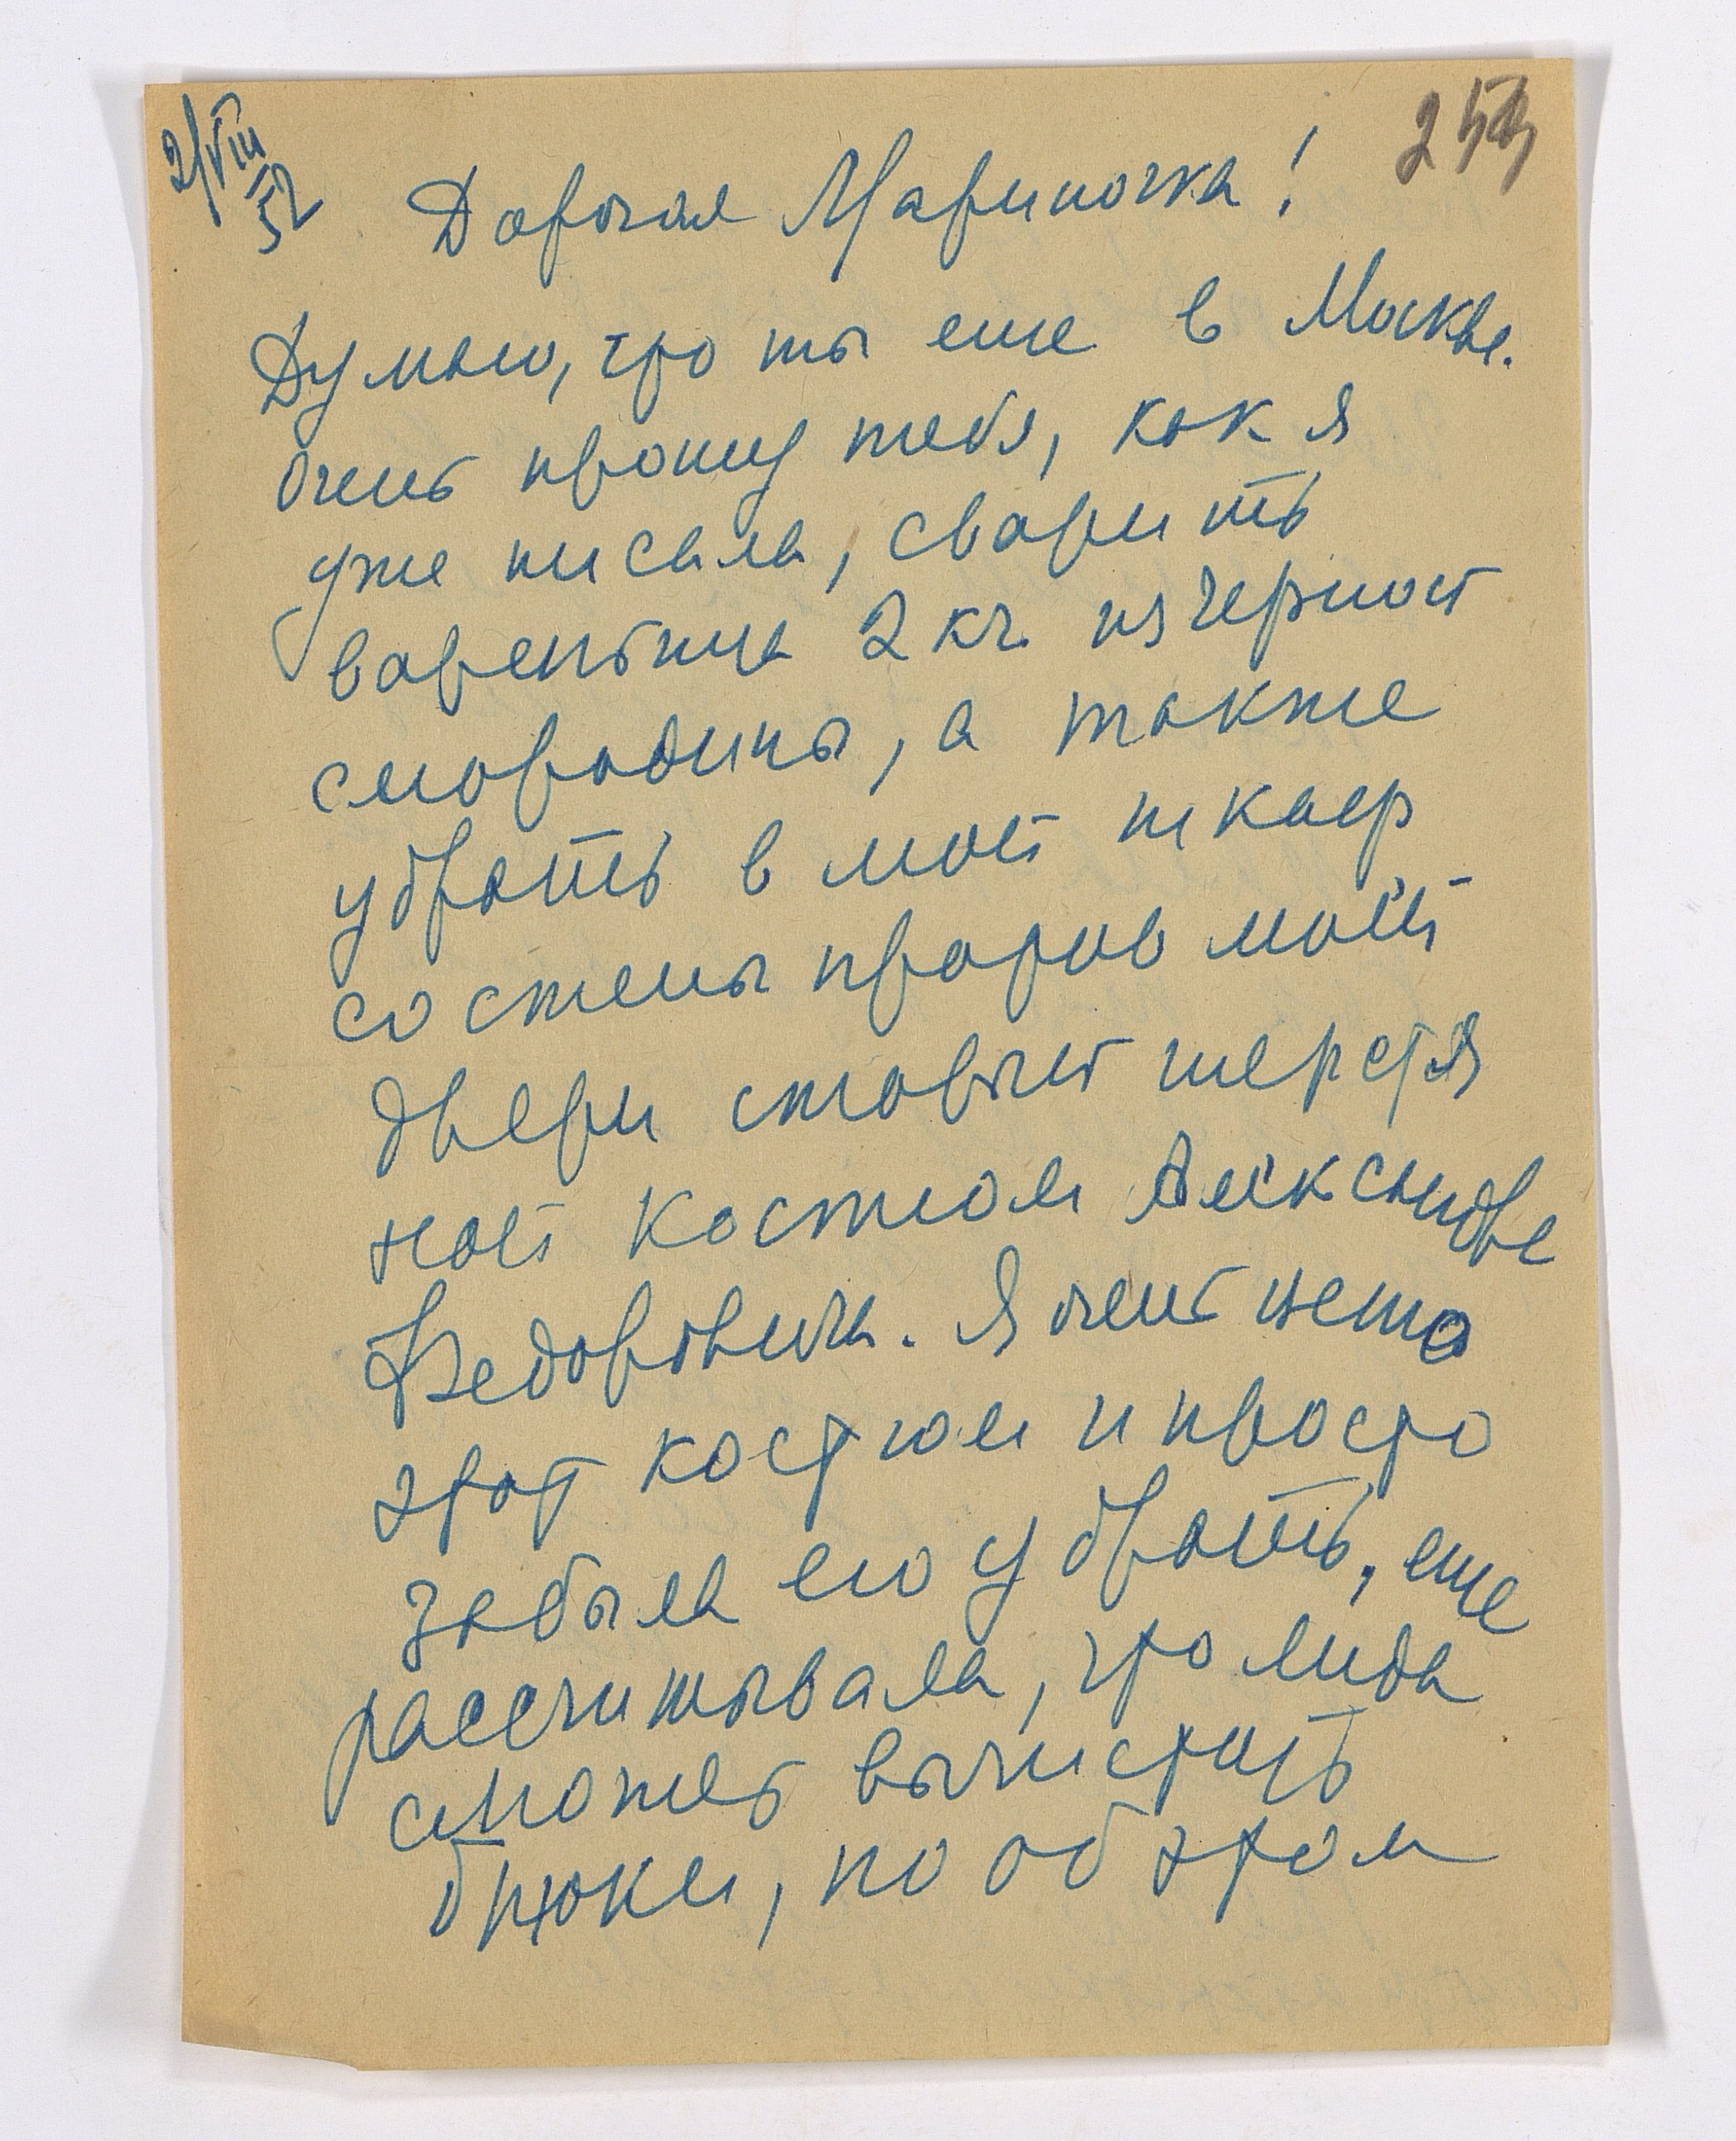 2/VIII
52
253
Дорогая Мариночка!
Думаю, что ты еще в Москве.
Очень прошу тебя, как я
уже писала, сварить
вареньица 2 кг. из черной
смородины, а также
убрать в мой шкаф
со стены против моей
двери ставший шерстя
ной костюм Александра
Федоровича. Я очень ценю
этот костюм и просто
забыла его убрать, еще
рассчитывала, что Лида
сможет вычистить
брюки, но об этом